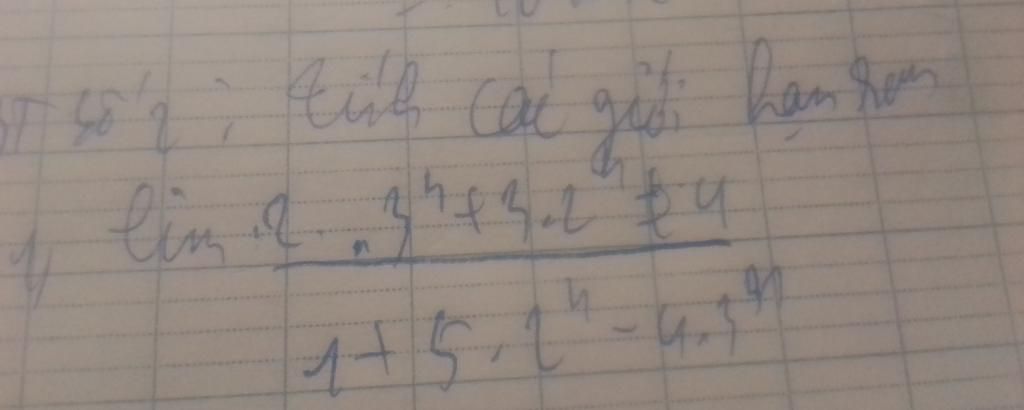 số 2 : tính các giới hạn sau
1, lim 2 . 3^n + 3.2^n + 4
1 + 5 . 2^n - 4.3^n